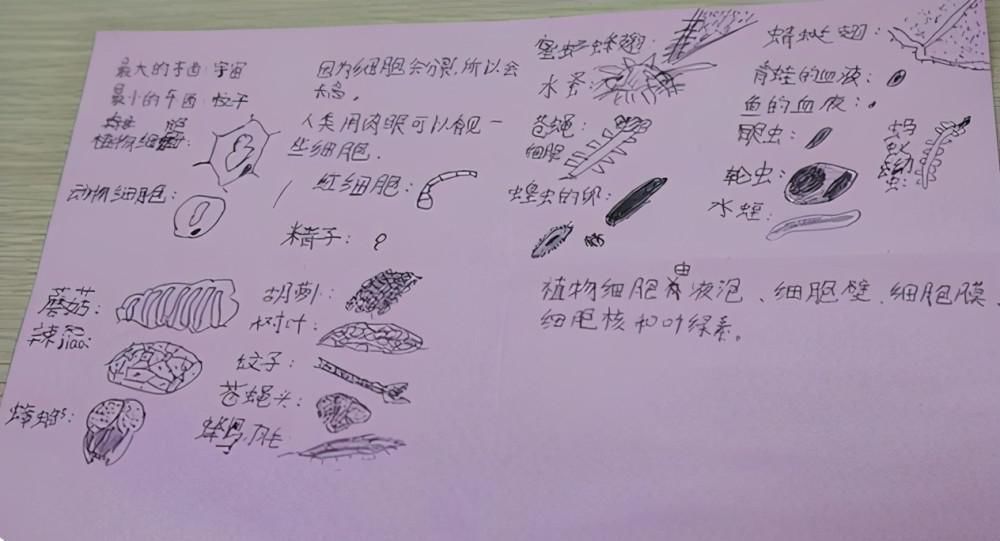 最大的东西:宇宙
最小的东西:粒子
植物细胞:
动物细胞:
因为细胞会分裂,所以会
长高。
人类用肉眼可以看见一
些细胞.
红细胞:
精子:
蘑菇:
辣jiao:
蟑螂:
胡萝卜:
树叶:
蚊子:
苍蝇头:
蜂鸟羽毛:
蜜蜂翅:
水蚤:
苍蝇:
细胞
蝗虫的卵:
蜻蜓翅:
青蛙的血液:
鱼的血液:
眼虫:
轮虫:
水蛭:
蚂
蚁
幼
虫:
植物细胞由液泡、细胞壁、细胞膜、
细胞核和叶绿素。